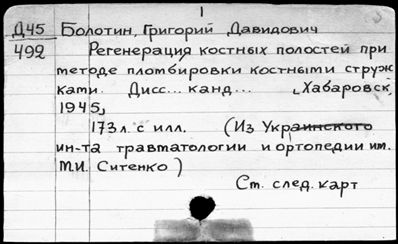 1
Д45 Болотин, Григорий Давидович
492 Регенерация костных полостей при
методе пломбировки костными струж
ками. Дисс... канд... Хабаровск,
1945,
173 л. с илл. (Из Украинского
ин-та травтматологии и ортопедии им.
М.И. Ситенко)
Ст. след. карт